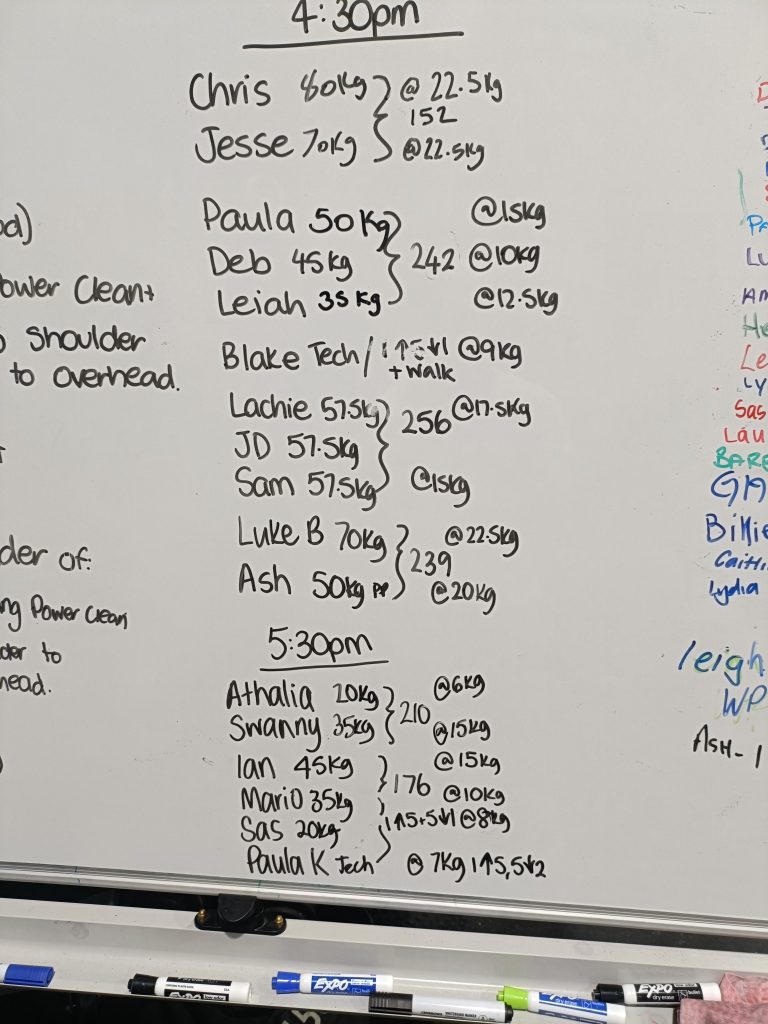 4:30pm
Chris 80kg } @ 22.5kg
152
Jesse 70kg @22.5kg
Paula 50kg @15kg
Deb 45kg } 242 @10kg
Leiah 35kg @12.5kg
Blake Tech / 1↑5↓1 @9kg
+ walk
Lachie 57.5kg } 256 @17.5kg
JD 57.5kg
Sam 57.5kg @15kg
Luke B 70kg } 239 @22.5kg
Ash 50kg PP @20kg
5:30pm
Athalia 20kg } 210 @6kg
Swanny 35kg @15kg
Ian 45kg } 176 @15kg
Mario 35kg @10kg
Sas 20kg 1↑5+5↓1 @8kg
Paula K Tech @ 7kg 1↑5,5↓2
ower Clean+
shoulder
to overhead.
der of:
ng Power Clean
der to
head.
Sas
Lau
BARE
Billie
Caitli
Lydia
leigh
WP
ASH-1
EXPO
EXPO
dry erase
EXPO
EXPO
dry erase